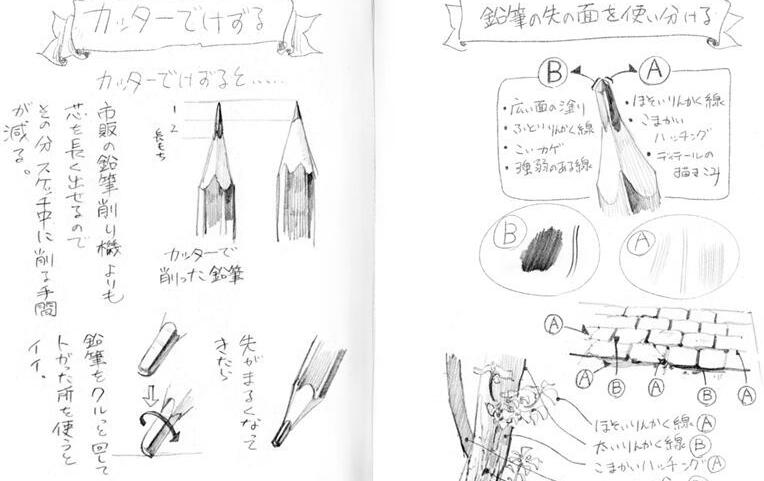 カッターでけずる
カッターでけずると……
市販の鉛筆削り機よりも
芯を長く出せるので
その分スケッチ中に削る手間
が減る。
1
2
長もち
カッターで
削った鉛筆
先がまるくなって
きたら
鉛筆をクルっと回して
トがった所を使うと
イイ。
鉛筆の先の面を使い分ける
B
A
・広い面の塗り
・ふといりんかく線
・こいカゲ
・強弱のある線
・ほそいりんかく線
・こまかい
ハッチング
・ディテールの
描きこみ
B
A
A
A
B
A
B
A
ほそいりんかく線 A
太いりんかく線 B
こまかいハッチング A